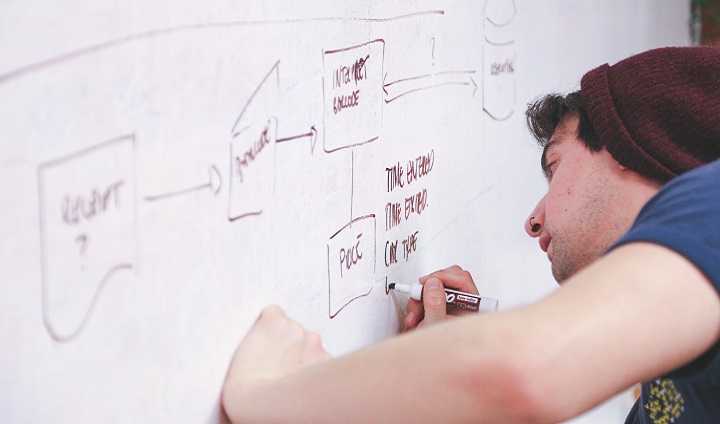 RECEIPT
?
BARCODE
INTERPRET
BARCODE
?
PRICE
TIME ENTERED
TIME EXITED.
CAR TYPE